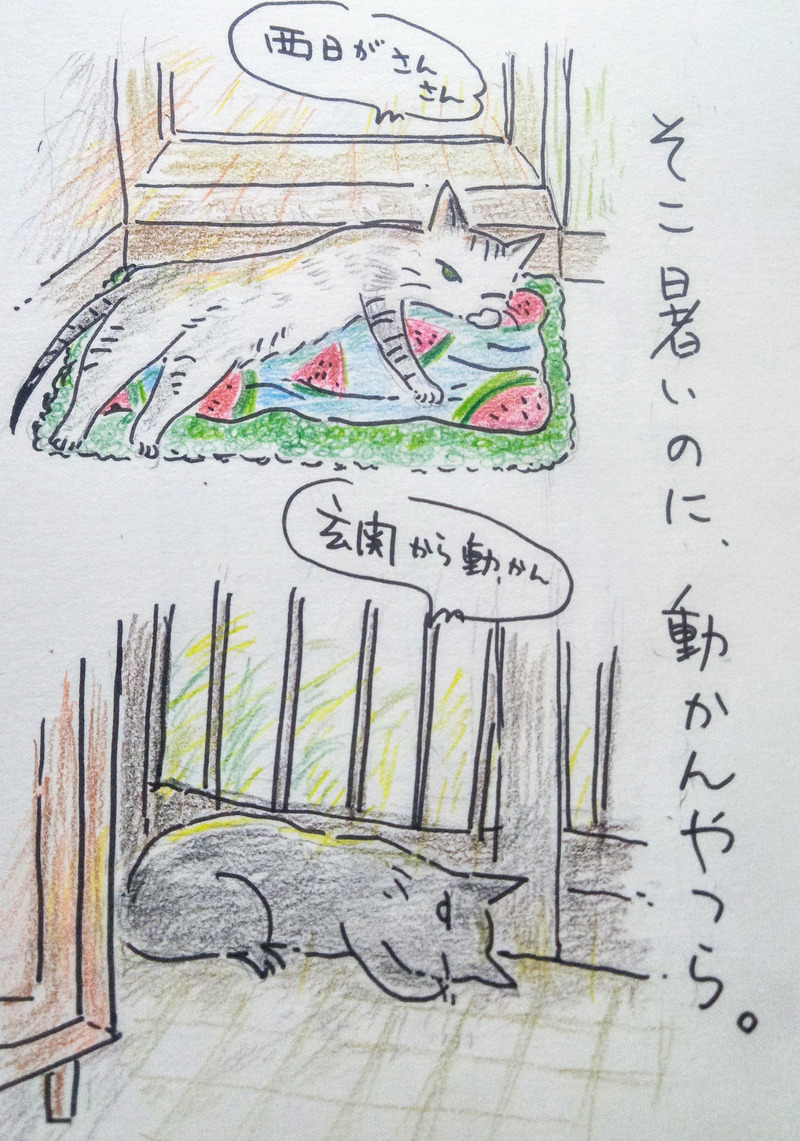 西日がさん
さん
そこ暑いのに、動かんやつら。
玄関から動かん